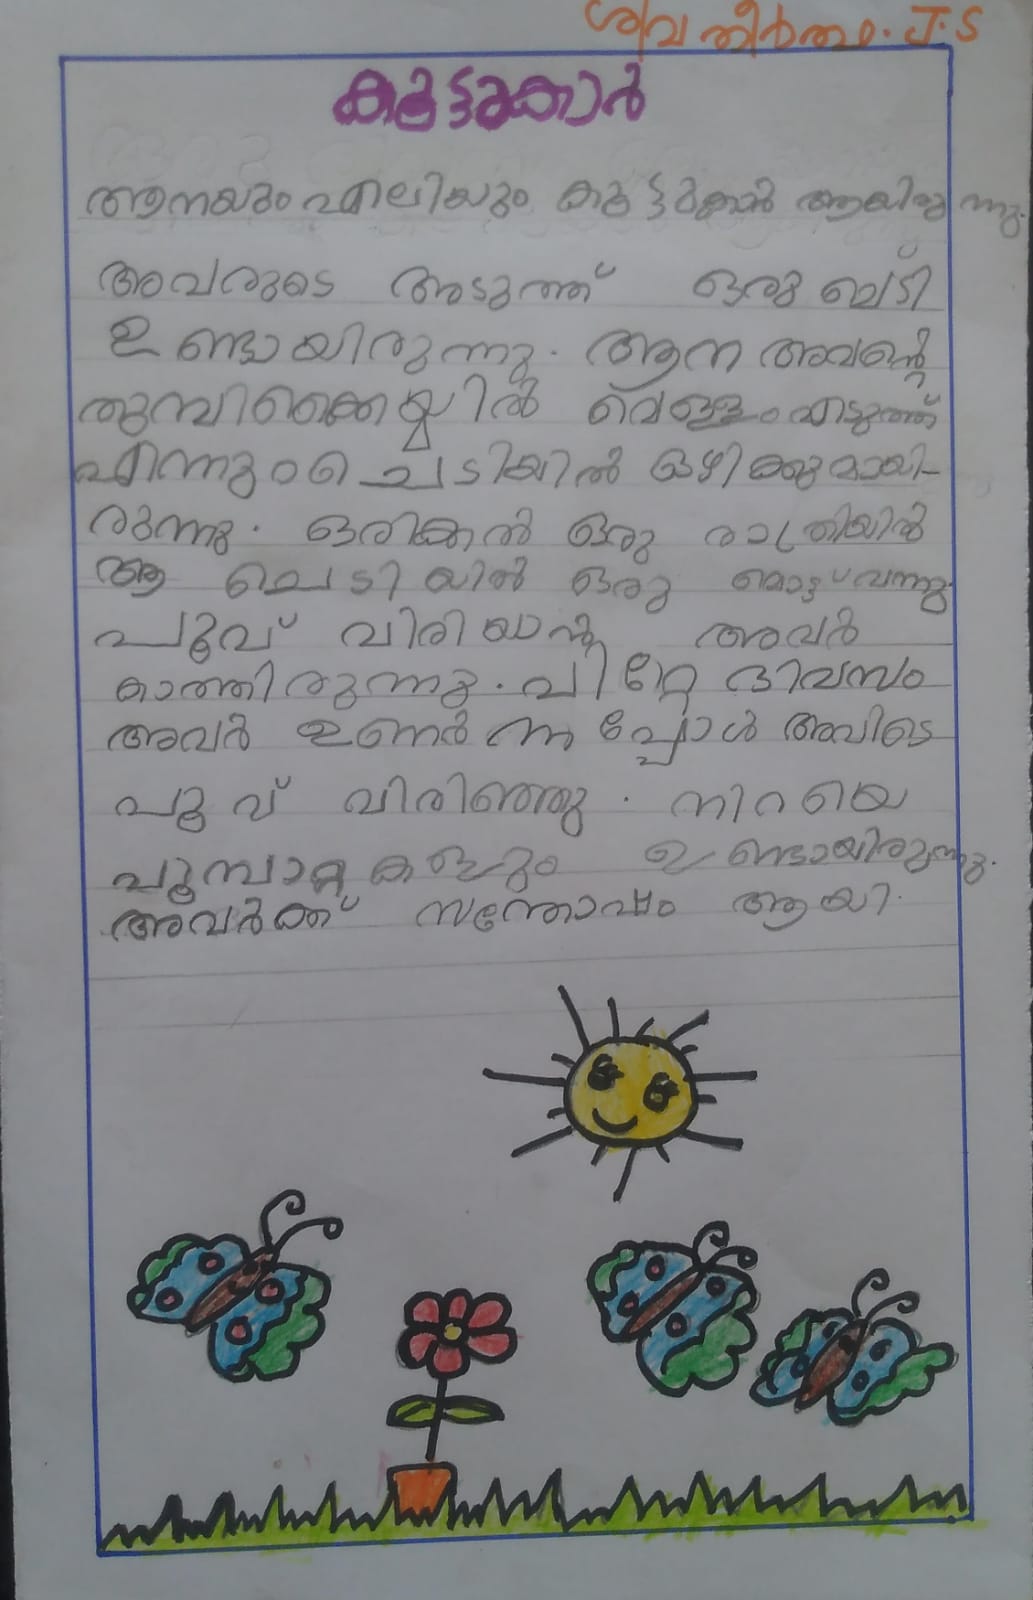 ശിവ തീർത്ഥ. J.S
കൂട്ടുകാർ
ആനയും എലിയും കൂട്ടുകാർ ആയിരുന്നു.
അവരുടെ അടുത്ത് ഒരു ചെടി
ഉണ്ടായിരുന്നു. ആന അവന്റെ
തുമ്പിക്കൈയ്യിൽ വെള്ളം എടുത്ത്
എന്നും ചെടിയിൽ ഒഴിക്കുമായി-
രുന്നു. ഒരിക്കൽ ഒരു രാത്രിയിൽ
ആ ചെടിയിൽ ഒരു മൊട്ട് വന്നു.
പൂവ് വിരിയാൻ അവർ
കാത്തിരുന്നു. പിറ്റേ ദിവസം
അവർ ഉണർന്നപ്പോൾ അവിടെ
പൂവ് വിരിഞ്ഞു. നിറയെ
പൂമ്പാറ്റകളും ഉണ്ടായിരുന്നു.
അവർക്ക് സന്തോഷം ആയി.